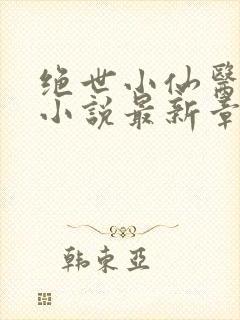 绝世小仙醫
小說最新章
韩东亚